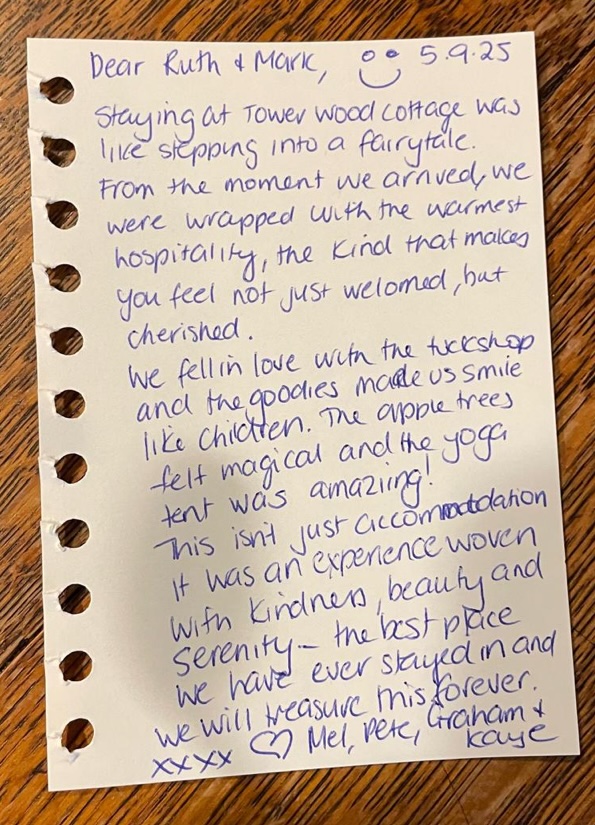 Dear Ruth & Mark, 5.9.25
Staying at Tower wood cottage was
like stepping into a fairytale.
From the moment we arrived, we
were wrapped with the warmest
hospitality, the kind that makes
you feel not just welomed, but
cherished.
We fell in love with the tuckshop
and the goodies made us smile
like children. The apple trees
felt magical and the yoga
tent was amaziing!
This isn't just accommodation
it was an experience woven
with kindness, beauty and
serenity - the best place
we have ever stayed in and
we will treasure this forever.
xxxx ♡ Mel, Pete, Graham &
Kaye